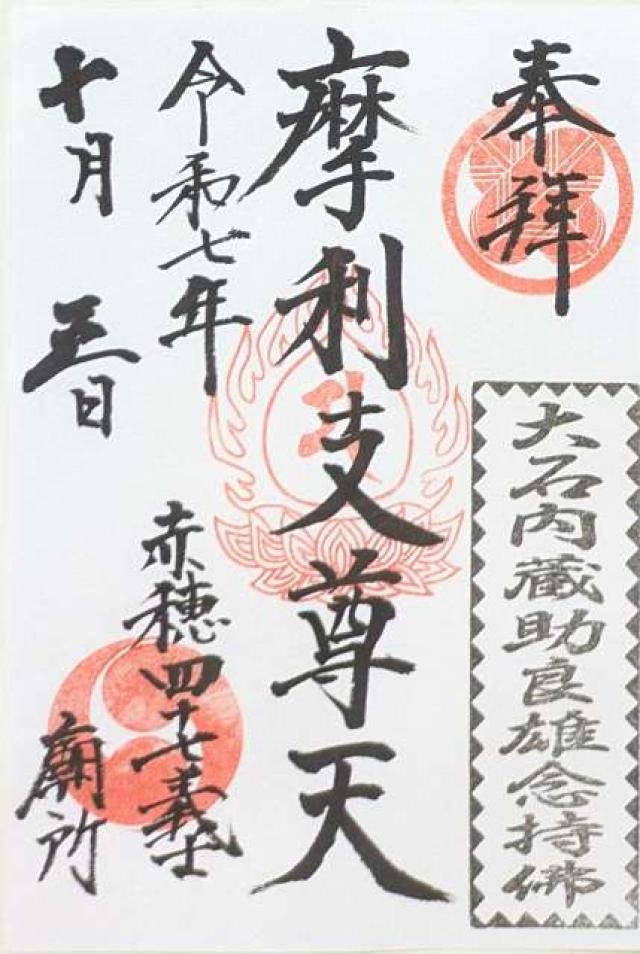 奉拝
大石内蔵助良雄念持佛
摩利支尊天
令和七年
十月三日
赤穂四十七義士
廟所